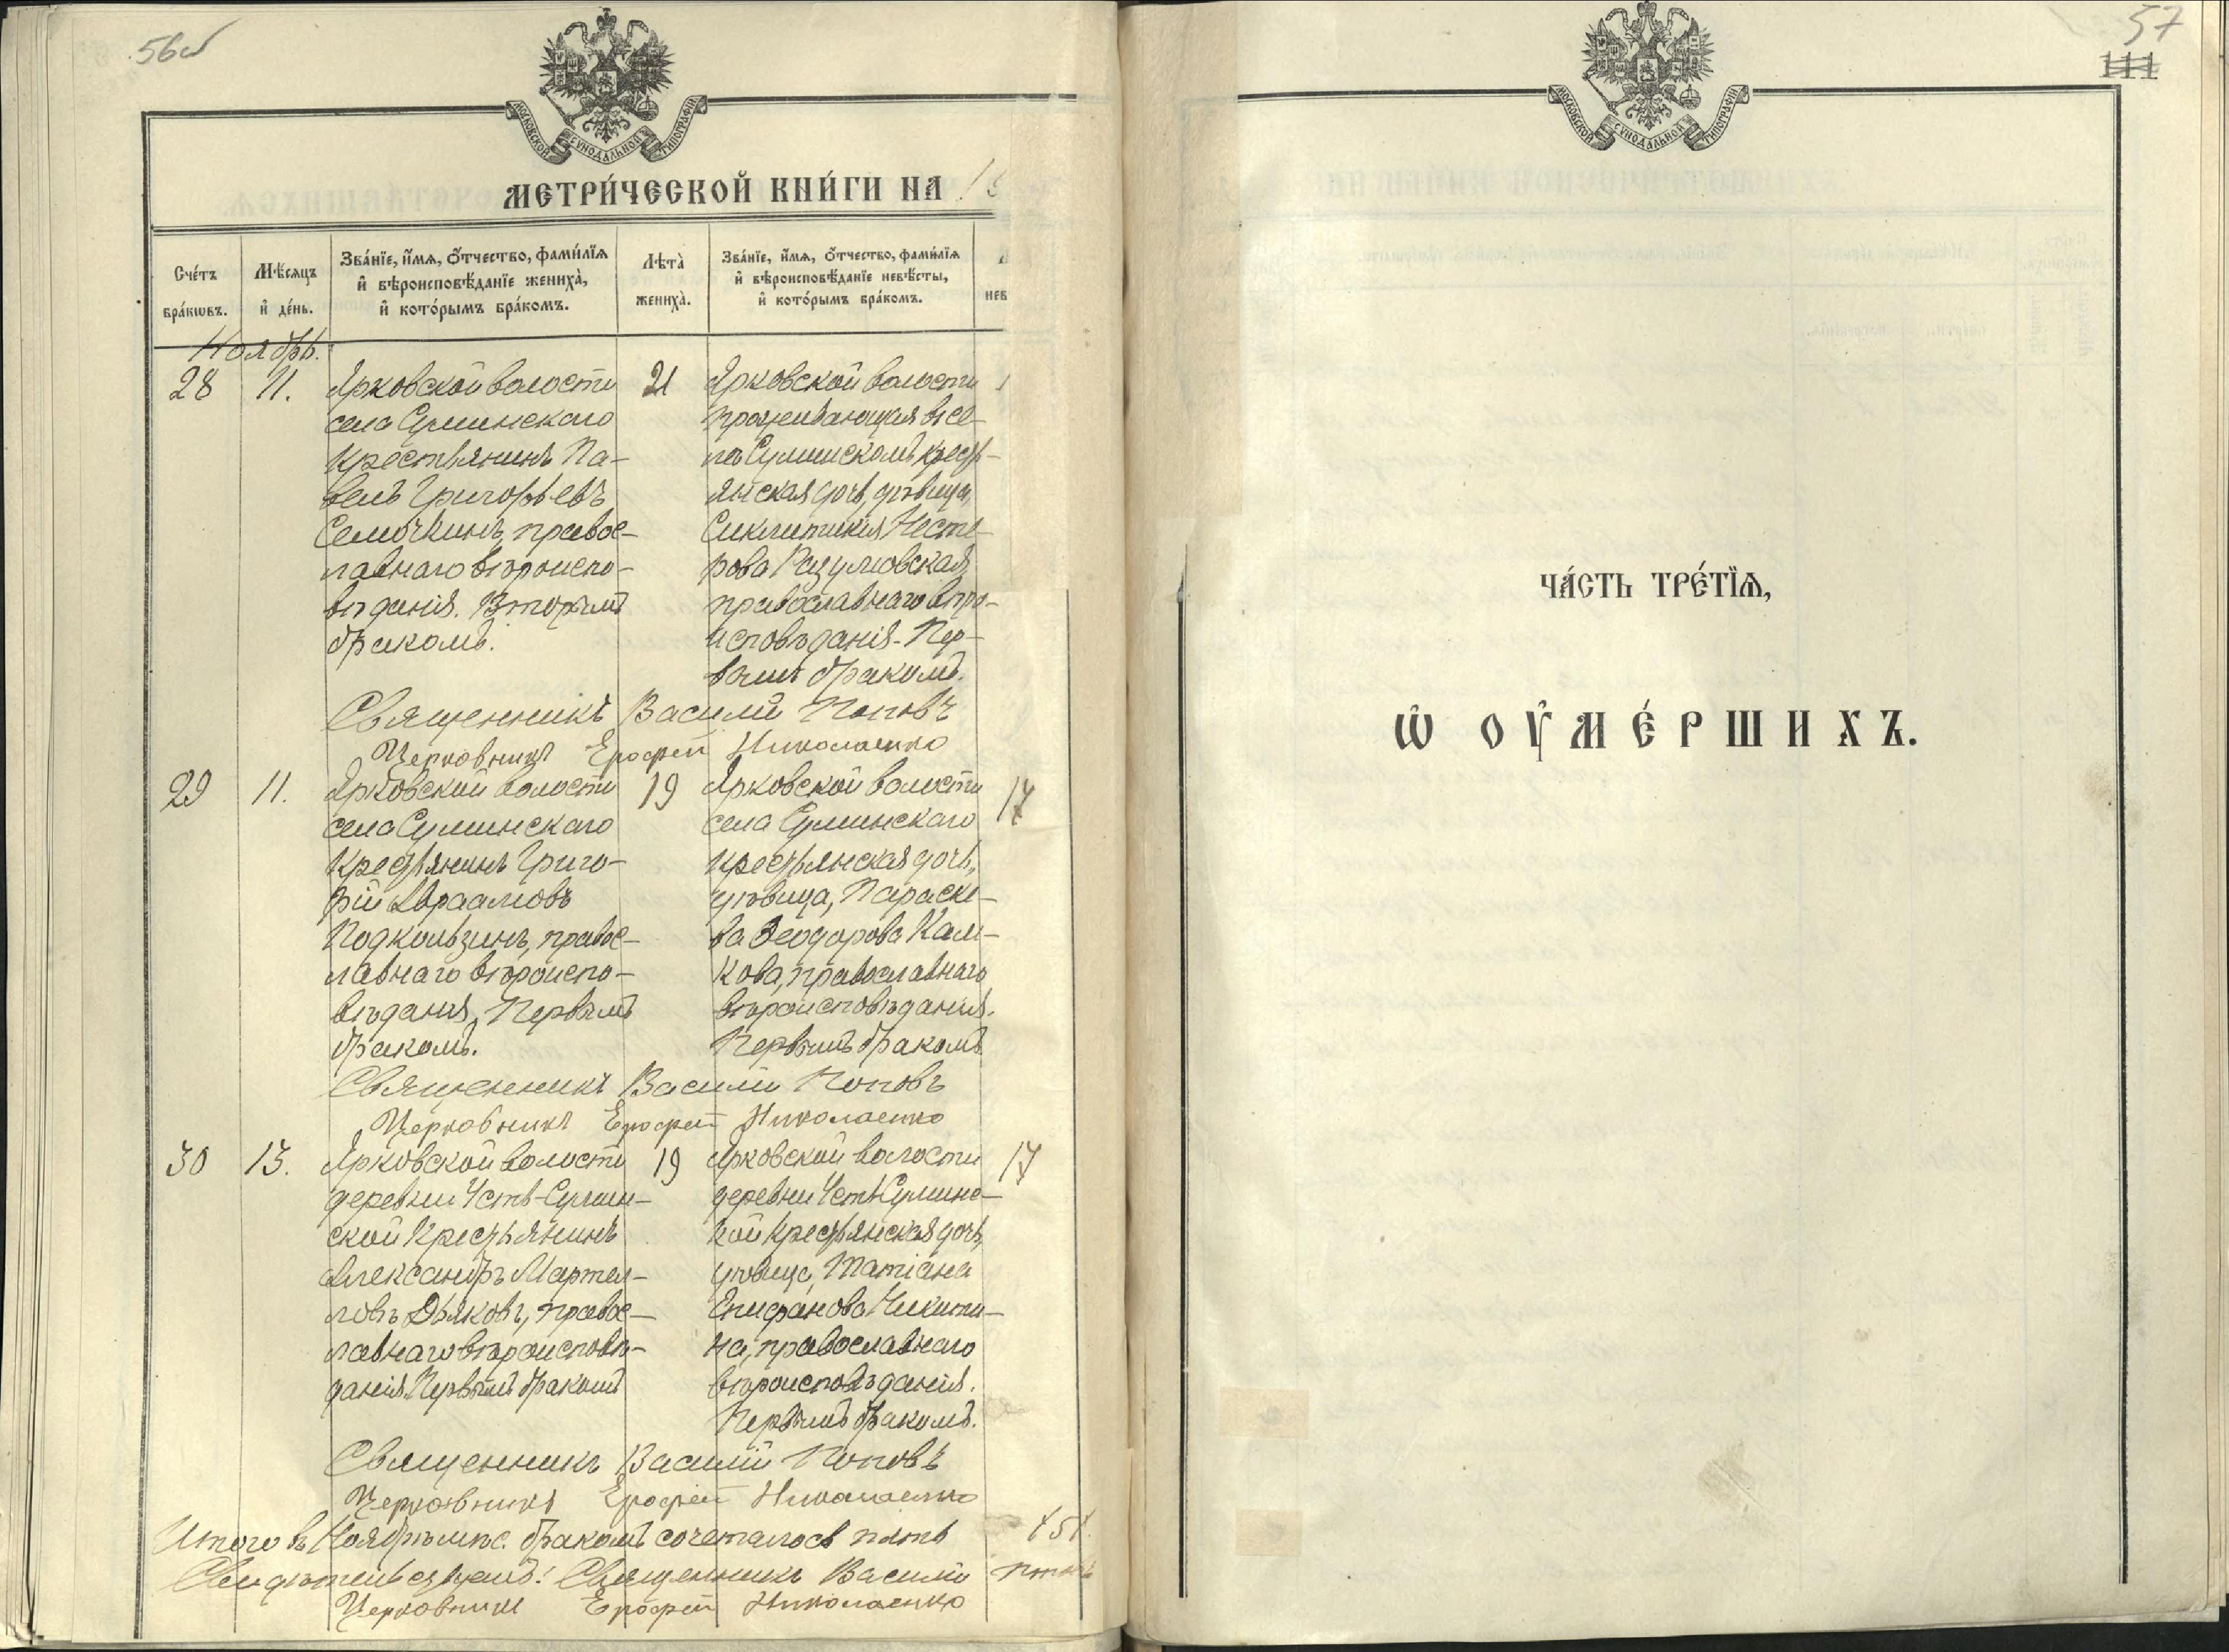 56об
МОСКОВСКОЙ СѴНОДАЛЬНОЙ ТИПОГРАФІИ
МЕТРИ́ЧЕСКОЙ КНИ́ГИ НА 18
Сче́тъ бра́кѡвъ.
Мѣ́сяцъ и҆ де́нь.
Зва́нїе, и҆́мѧ, ѻ҆́тчество, фами́лїѧ
и҆ вѣроисповѣ́данїе жениха̀,
и҆ кото́рымъ бра́комъ.
Лѣта̀ жениха̀.
Зва́нїе, и҆́мѧ, ѻ҆́тчество, фами́лїѧ
и҆ вѣроисповѣ́данїе невѣ́сты,
и҆ кото́рымъ бра́комъ.
нев
Ноябрь.
28 11.
Ярковской волости
села Сулинскаго
крестьянинъ Па-
велъ Григорьевъ
Семочкинъ, правос-
лавнаго вѣроиспо-
вѣданія. Вторымъ
бракомъ.
21
Ярковской волости
проживающая въ се-
лѣ Сулинскомъ крестьянская дочь, дѣвица,
Синклитикія Несте-
рова Разумовская,
православнаго вѣро-
исповѣданія. Пер-
вымъ бракомъ.
Священникъ Василій Поповъ
Церковникъ Ерофей Николаенко
29 11.
Ярковской волости
села Сулинскаго
крестьянинъ Григо-
рій Авраамовъ
Подкользинъ, правос-
лавнаго вѣроиспо-
вѣданія, Первымъ
бракомъ.
19
Ярковской волости
села Сулинскаго
крестьянская дочь,
дѣвица, Параске-
ва Ѳеодорова Кал-
кова, православнаго
вѣроисповѣданія.
Первымъ бракомъ
17
Священникъ Василій Поповъ
Церковникъ Ерофей Николаенко
30 13.
Ярковской волости
деревни Усть-Сулин-
ской Крестьянинъ
Александръ Мартем-
ловъ Дьяковъ, правос-
лавнаго вѣроисповѣ-
данія Первымъ бракомъ
19
Ярковской волости
деревни Усть-Сулинс-
кой крестьянская дочь,
дѣвица, Татіана
Епифанова Никити-
на, православнаго
вѣроисповѣданія.
Первымъ бракомъ.
17
Священникъ Василій Поповъ
Церковникъ Ерофей Николаенко
Итого въ Ноябрѣ мѣс. бракомъ сочеталось пять
Свидѣтельствуемъ: Священникъ Василій
Церковникъ Ерофей Николаенко
57
111
МОСКОВСКОЙ СѴНОДАЛЬНОЙ ТИПОГРАФІИ
ЧА́СТЬ ТРЕ́ТЇѦ,
Ѡ҆ ОУ҆МЕ́РШИХЪ.